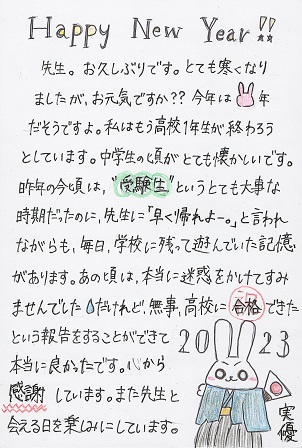 Happy New Year!!
先生。お久しぶりです。とても寒くなり
ましたが、お元気ですか??今年は🐰年
だそうですよ。私はもう高校1年生が終わろう
としています。中学生の頃がとても懐かしいです。
昨年の今頃は、"受験生"というとても大事な
時期だったのに、先生に「早く帰れよー。」と言われ
ながらも、毎日、学校に残って遊んでいた記憶
があります。あの頃は、本当に迷惑をかけてすみ
ませんでした💧だけれど、無事、高校に合格できた
という報告をすることができて
本当に良かったです。心から
感謝しています。また先生と
会える日を楽しみにしています。
2023
実優